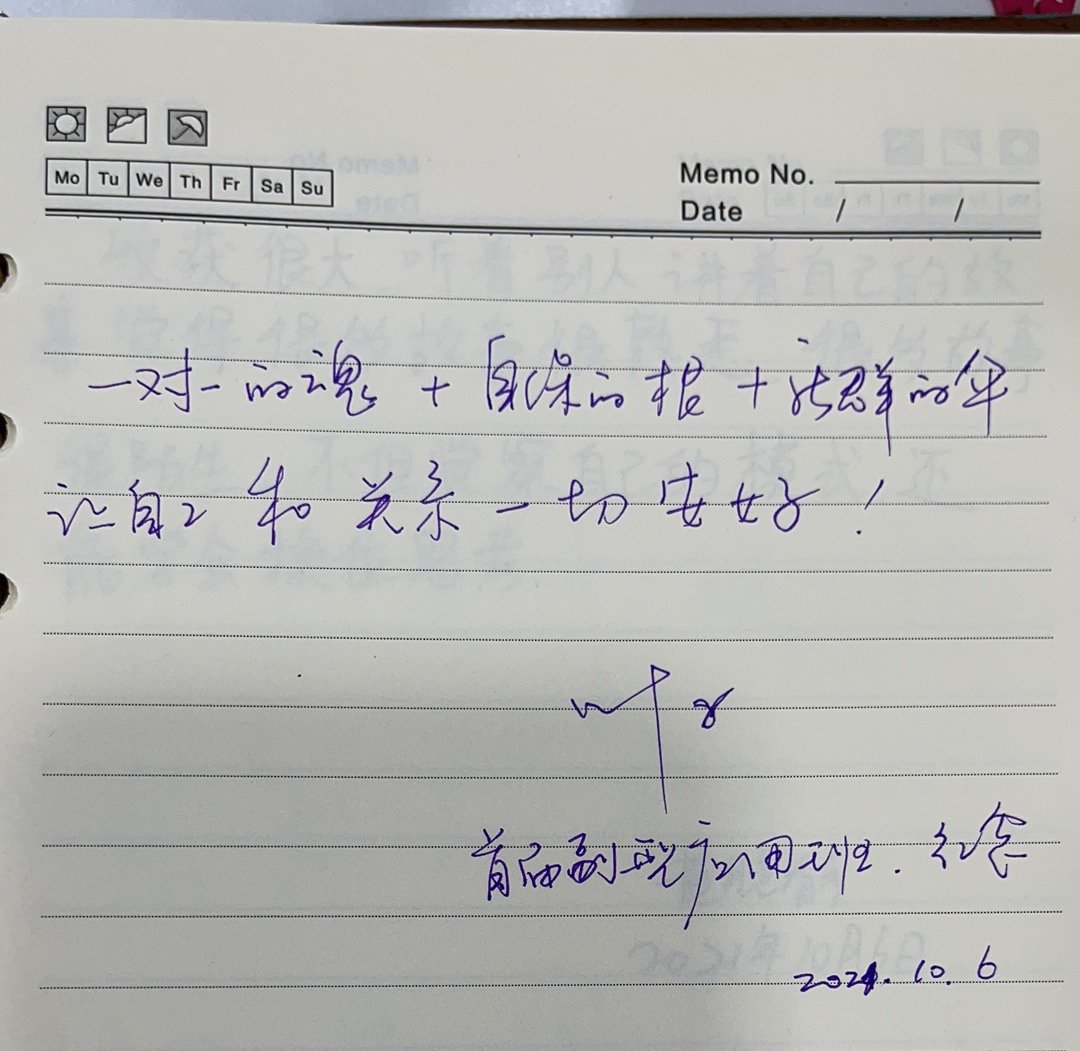 Mo Tu We Th Fr Sa Su
Memo No.
Date / /
一对一的魂 + 自保的根 + 社群的伞
让自己和关系一切安好!
叶
首届副 应用班. 纪念
2021.10.6